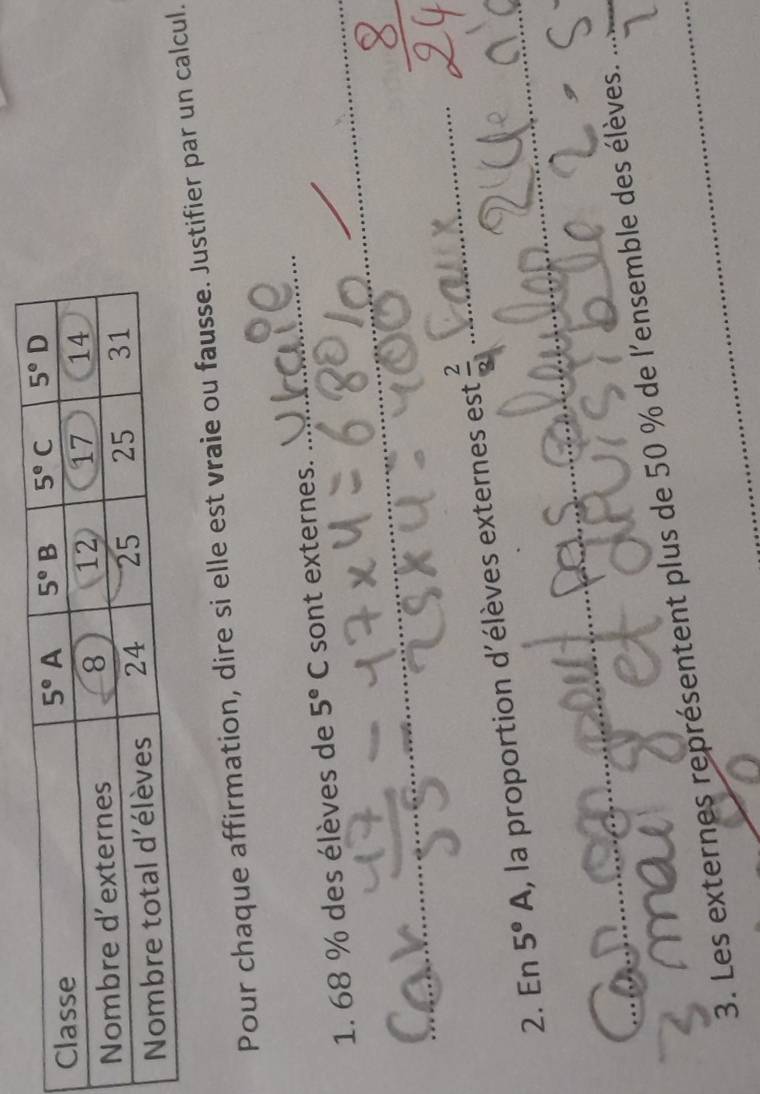 Classe 5e A 5e B 5e C 5e D
Nombre d'externes 8 12 17 14
Nombre total d'élèves 24 25 25 31
Pour chaque affirmation, dire si elle est vraie ou fausse. Justifier par un calcul.
1. 68 % des élèves de 5e C sont externes. vraie
Car 17 = 17 x 4 = 68 %
25 x 4 = 100
2. En 5e A, la proportion d'élèves externes est 2 faux
8
24
Car on peut pas calculer 24 e
3 mai 8 et 2
3. Les externes représentent plus de 50 % de l'ensemble des élèves.